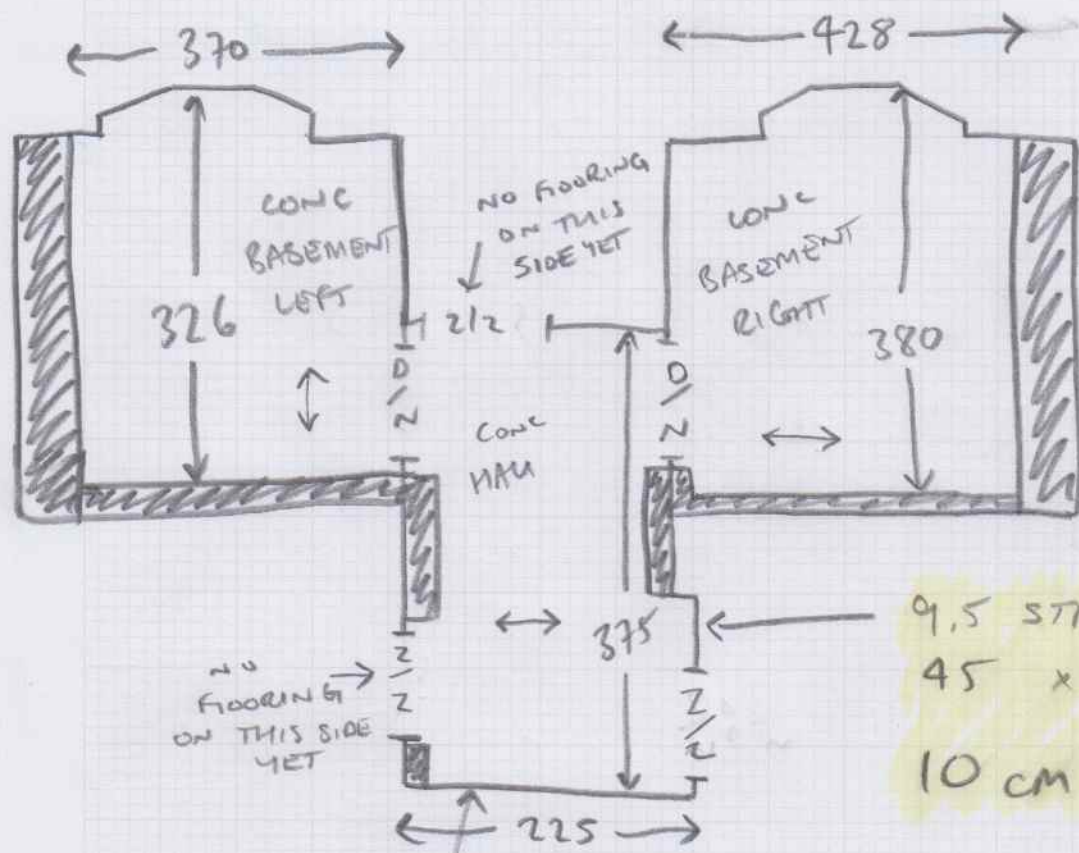 370
428
CONC
BASEMENT
LEFT
NO FLOORING
ON THIS
SIDE YET
CONC
BASEMENT
RIGHT
326
2/2
380
D/2
D/2
CONC
HALL
375
9.5
45 x
10 cm
NO
FLOORING
ON THIS SIDE
YET
2/2
2/2
225